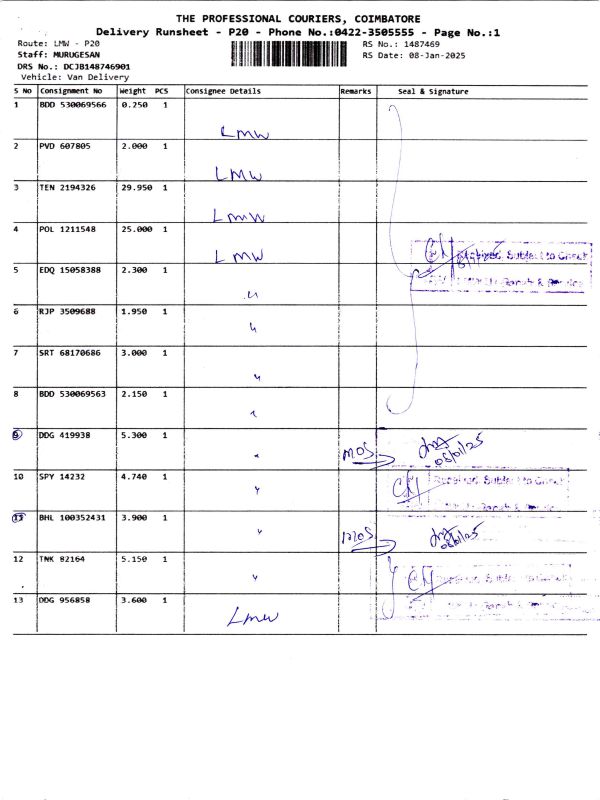 THE PROFESSIONAL COURIERS, COIMBATORE
Delivery Runsheet - P20 - Phone No.:0422-3505555 - Page No.:1
Route: LMW - P20 RS No.: 1487469
Staff: MURUGESAN RS Date: 08-Jan-2025
DRS No.: DCJB148746901
Vehicle: Van Delivery
S No Consignment No Weight PCS Consignee Details Remarks Seal & Signature
1 BDD 530069566 0.250 1
LMW
2 PVD 607805 2.000 1
LMW
3 TEN 2194326 29.950 1
LMW
4 POL 1211548 25.000 1
LMW Received Subject to Check
5 EDQ 15058388 2.300 1
"
6 RJP 3509688 1.950 1
"
7 SRT 68170686 3.000 1
"
8 BDD 530069563 2.150 1
"
9 DDG 419938 5.300 1
" MOS 08/01/25
10 SPY 14232 4.740 1 Received Subject to Check
"
11 BHL 100352431 3.900 1
" MOS 08/01/25
12 TNK 82164 5.150 1
"
13 DDG 956858 3.600 1
LMW